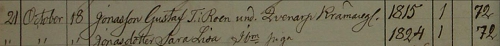 21 October 18 Jonasson Gustaf T: Roen und. Qvenarp Kråmaieg. 1815 1 72
" " " Jonasdotter Sara Lisa " Dbm piga 1824 1 72